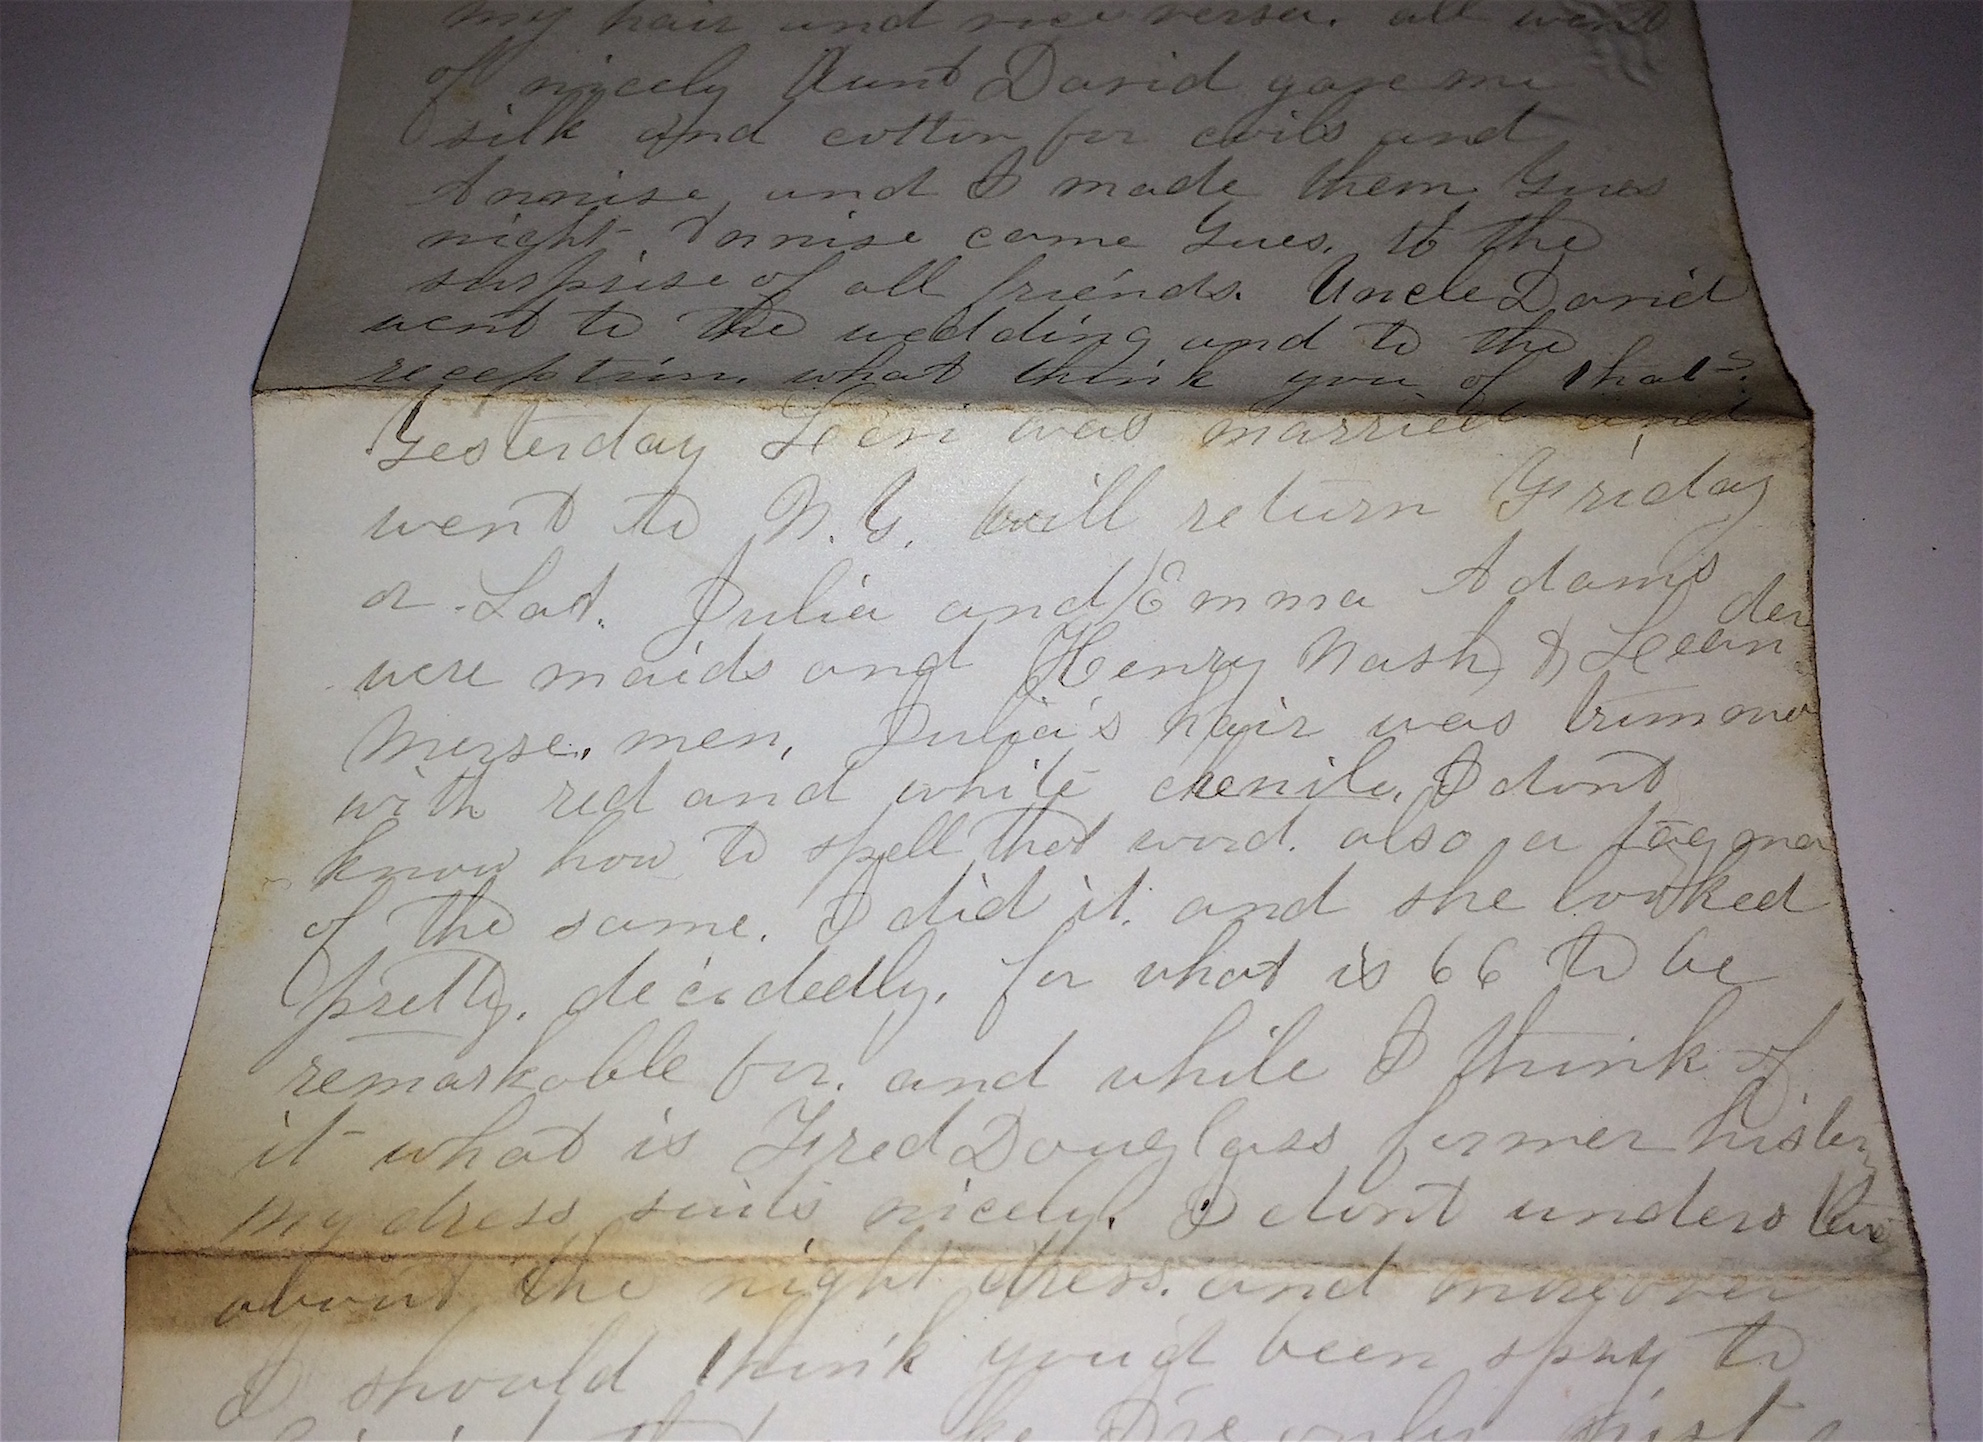 my hair and vice versa. all went
off nicely Aunt David gave me
silk and cotton for coils and
Annise and I made them Tues
night. Annise came Tues. to the
surprise of all friends. Uncle David
went to the wedding and to the
reception. what think you of that?
Yesterday was married and
went to N.Y. will return Friday
or Sat. Julia and Emma Adams
were maids and Henry Nash &
Morse. men, Julia's hair was trimme
with red and white chenile, I dont
know how to spell that word. also a
of the same. I did it. and she looked
pretty, decidedly, for what is 66 to be
remarkable for. and while I think of
it what is Fred Douglass former
my dress suits nicely. I dont
about the night dress. and moreover
I should think you'd been spry to
only just